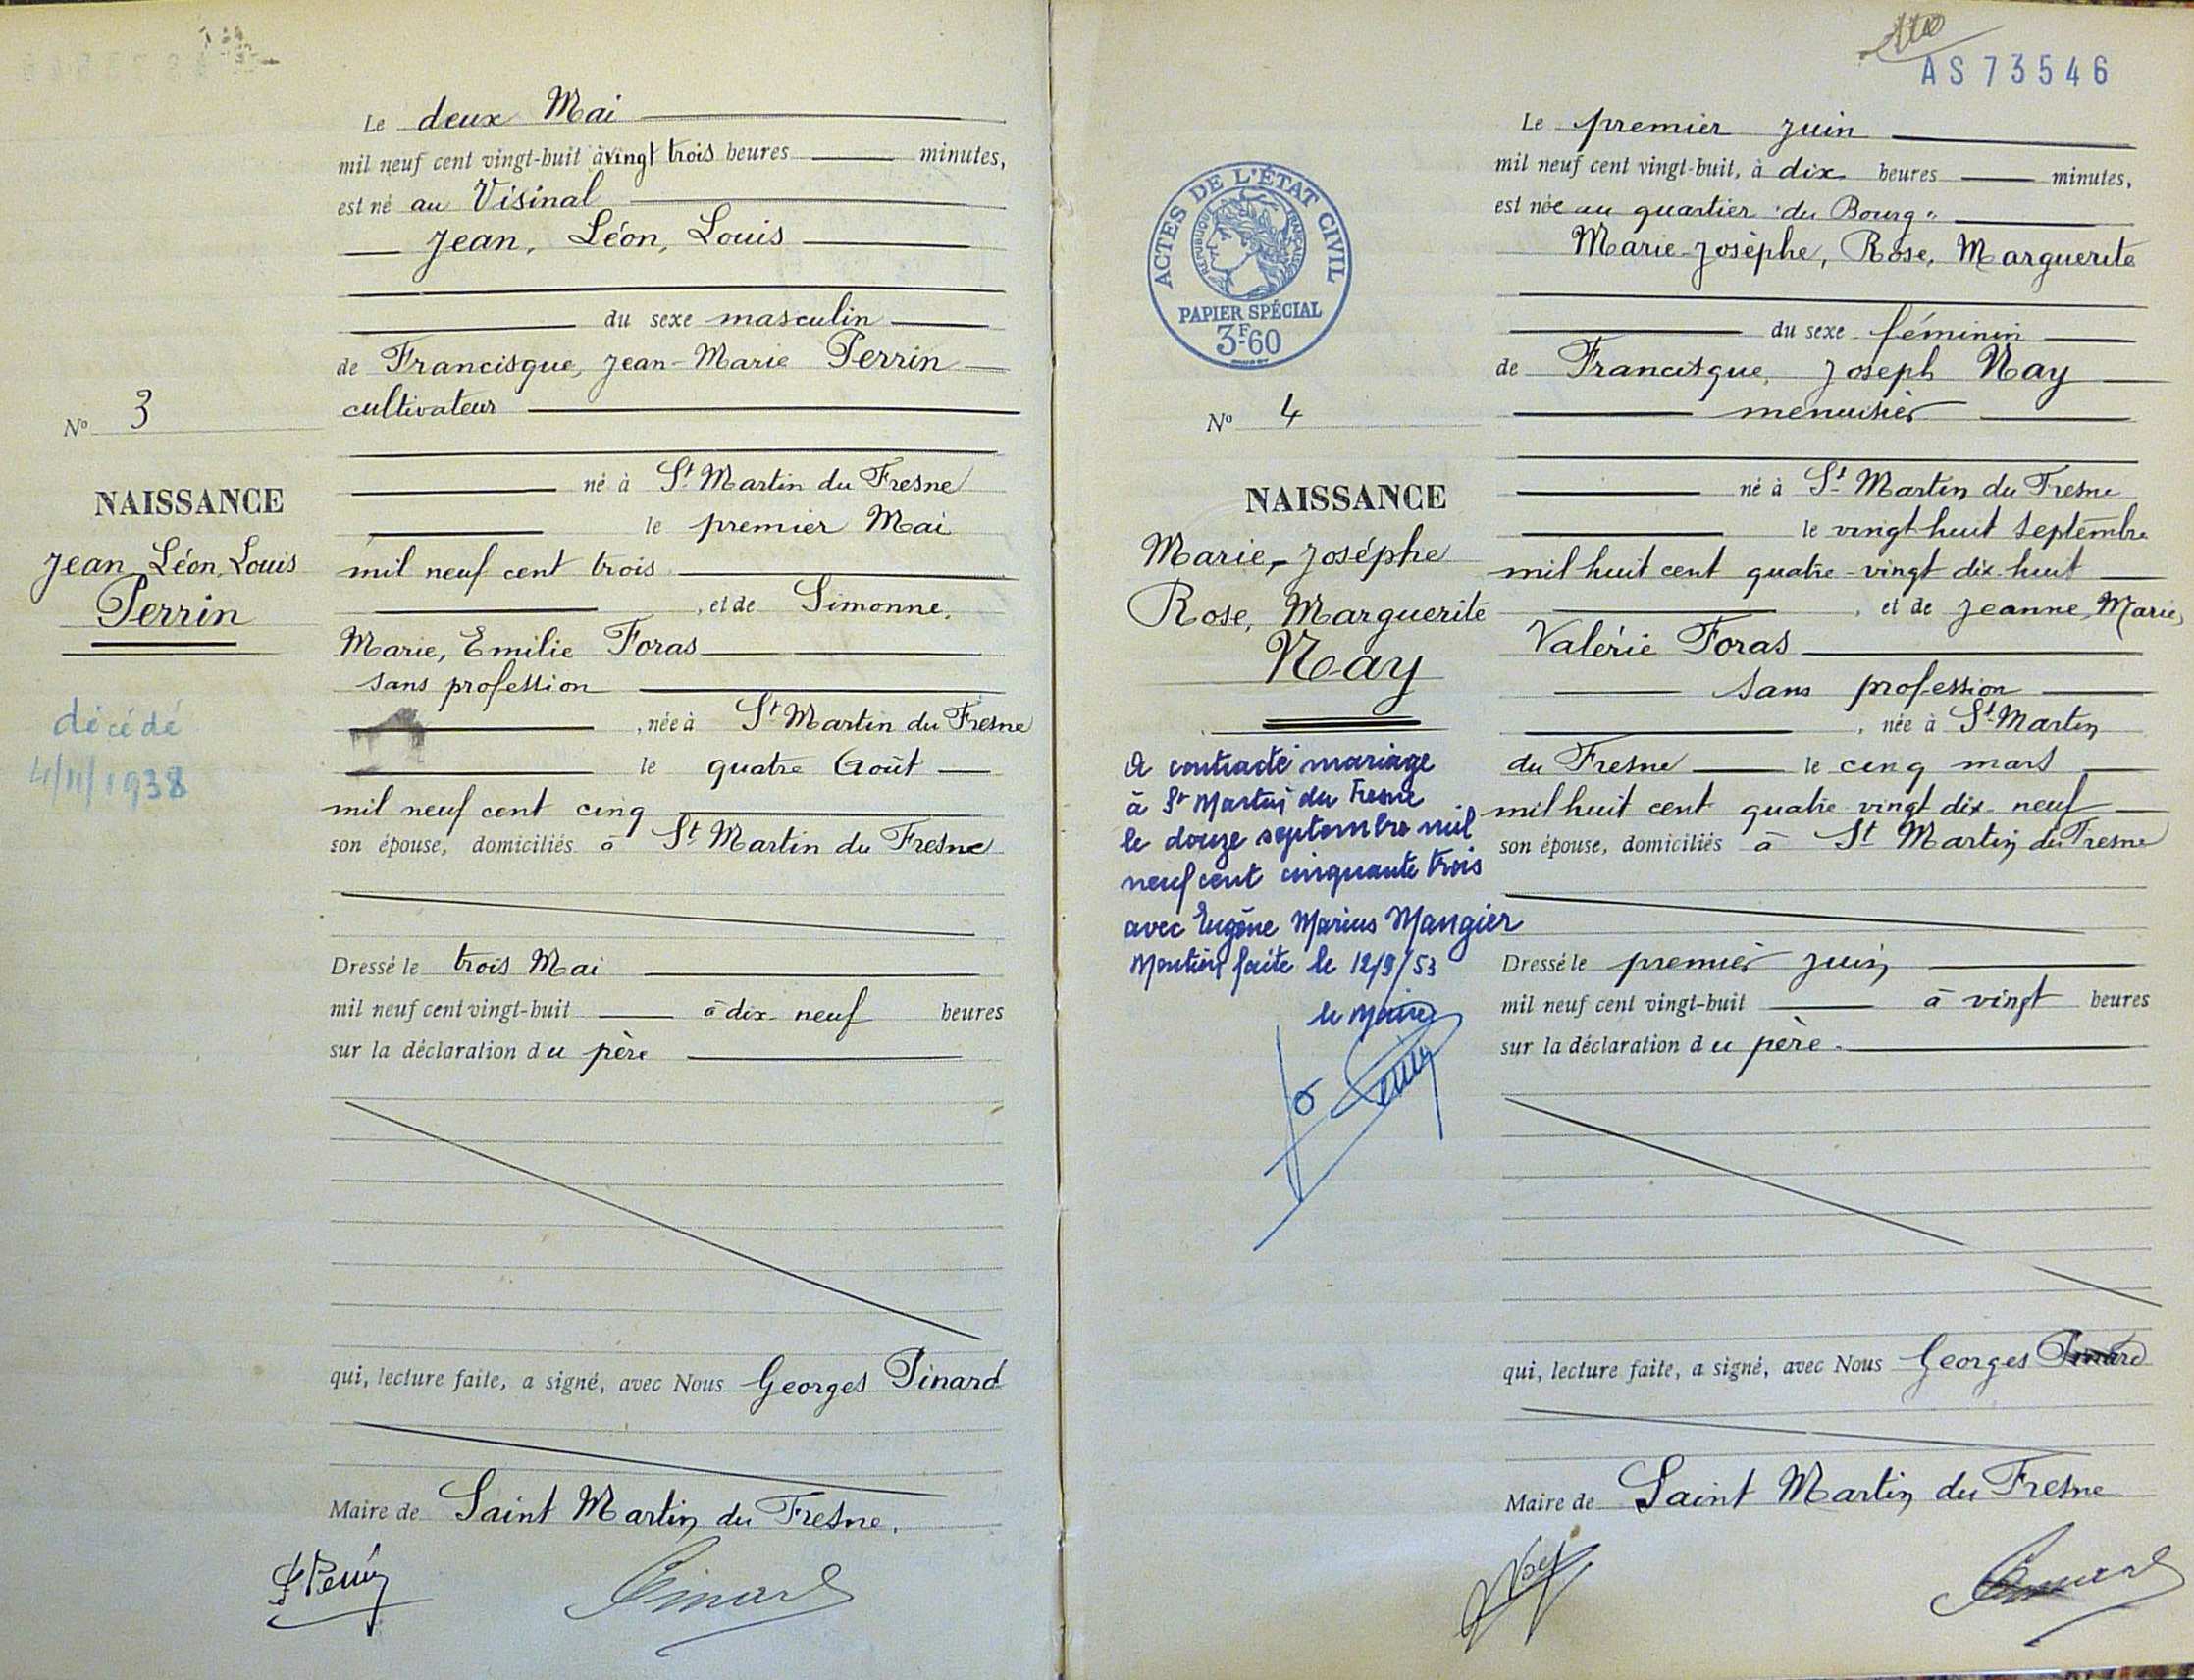 Le deux Mai
mil neuf cent vingt-huit à vingt trois heures minutes,
est né au Visinal
Jean, Léon, Louis
du sexe masculin
de Francisque, Jean-Marie Perrin
cultivateur
N° 3
né à St Martin du Fresne
NAISSANCE
le premier Mai
Jean, Léon, Louis
Perrin
mil neuf cent trois
, et de Simonne,
Marie, Emilie Foras
sans profession
, née à St Martin du Fresne
décédé
4/11/1938
le quatre Août
mil neuf cent cinq
son épouse, domiciliés à St Martin du Fresne
Dressé le trois Mai
mil neuf cent vingt-huit à dix-neuf heures
sur la déclaration du père
qui, lecture faite, a signé, avec Nous Georges Pinard
Maire de Saint Martin du Fresne.
Perrin
Pinard
AS 73546
Le premier Juin
mil neuf cent vingt-huit, à dix heures minutes,
est née au quartier "du Bourg"
Marie-Josèphe, Rose, Marguerite
du sexe féminin
de Francisque, Joseph Nay
menuisier
ACTES DE L'ÉTAT CIVIL
RÉPUBLIQUE FRANÇAISE
PAPIER SPÉCIAL
3F60
N° 4
né à St Martin du Fresne
NAISSANCE
le vingt-huit septembre
Marie-Josèphe
Rose, Marguerite
Nay
mil huit cent quatre-vingt dix-huit
, et de Jeanne, Marie,
Valérie Foras
sans profession
, née à St Martin
du Fresne le cinq mars
mil huit cent quatre-vingt dix-neuf
son épouse, domiciliés à St Martin du Fresne
A contracté mariage
à St Martin du Fresne
le douze septembre mil
neuf cent cinquante trois
avec Eugène Marius Mangier
Mention faite le 12/9/53
le Maire
Dressé le premier Juin
mil neuf cent vingt-huit à vingt heures
sur la déclaration du père.
qui, lecture faite, a signé, avec Nous Georges Pinard
Maire de Saint Martin du Fresne
Nay
Pinard